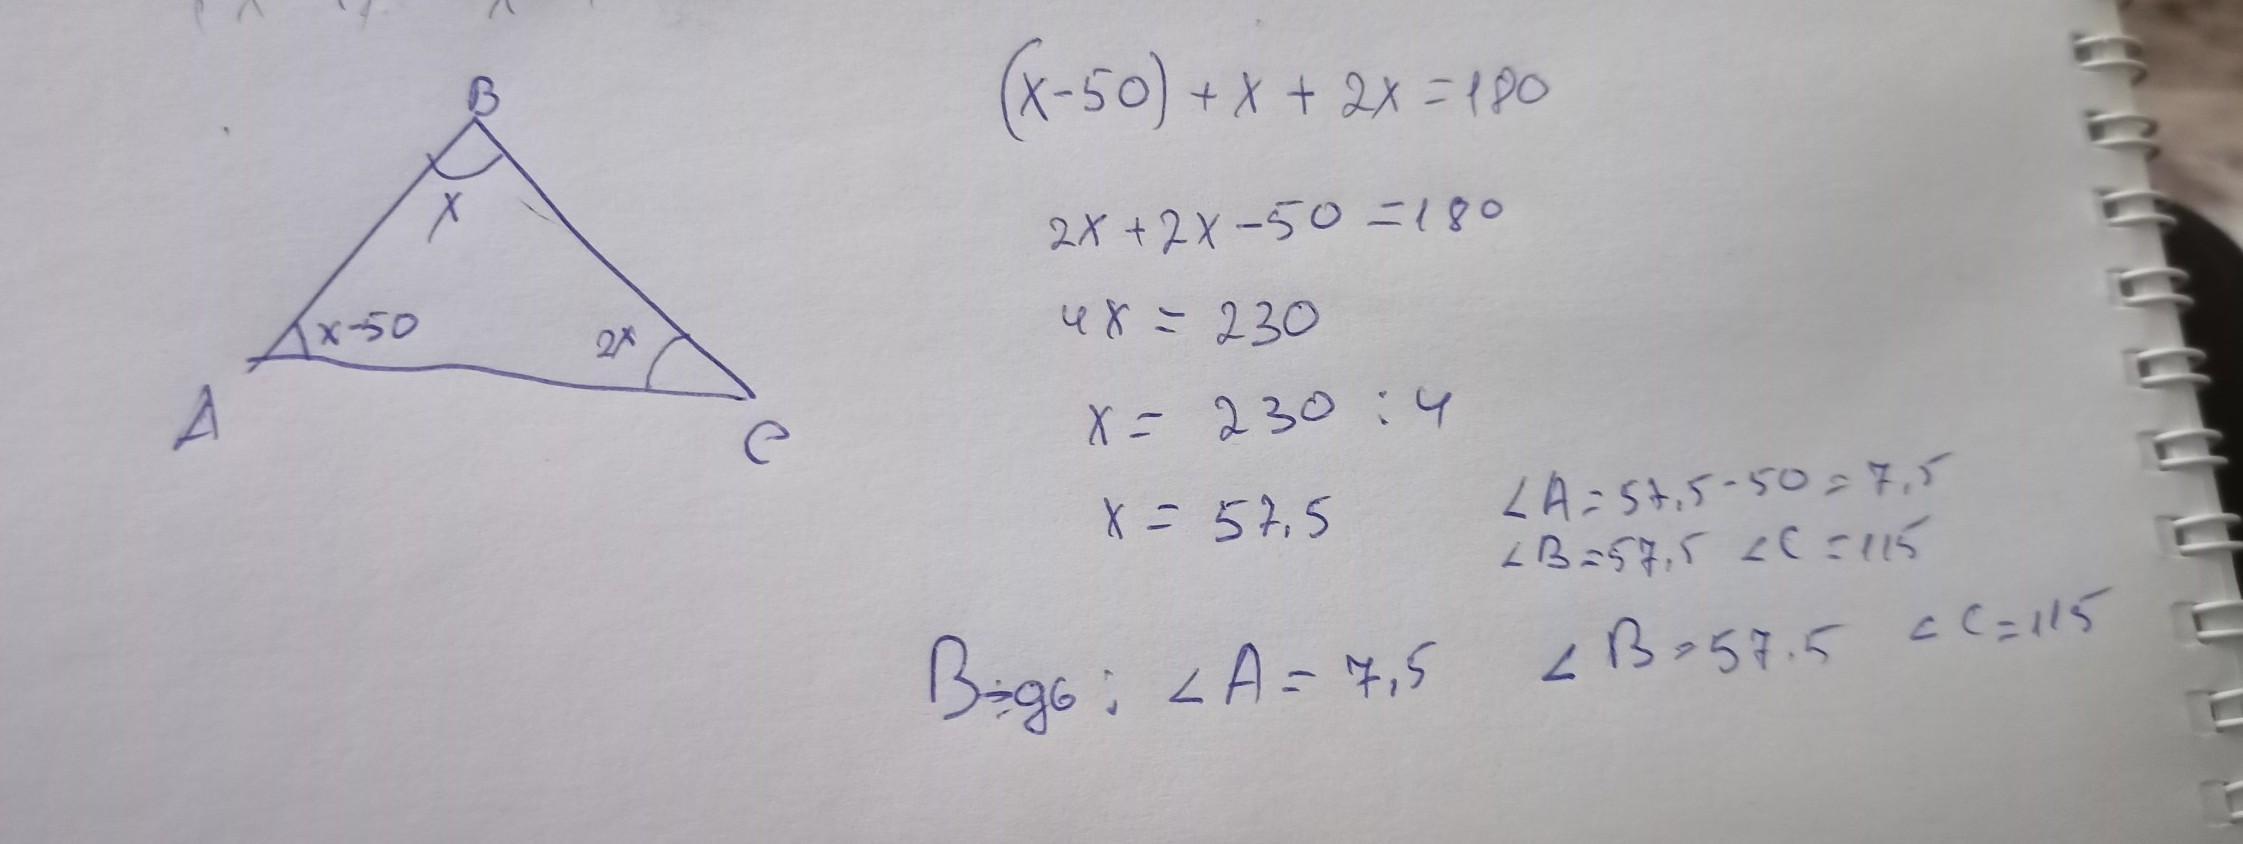 B
x
x-50
2x
A
C
(x-50)+x+2x=180
2x+2x-50=180
4x=230
x=230:4
x=57,5
∠A=57,5-50=7,5
∠B=57,5 ∠C=115
В-gь: ∠A=7,5 ∠B=57.5 ∠C=115